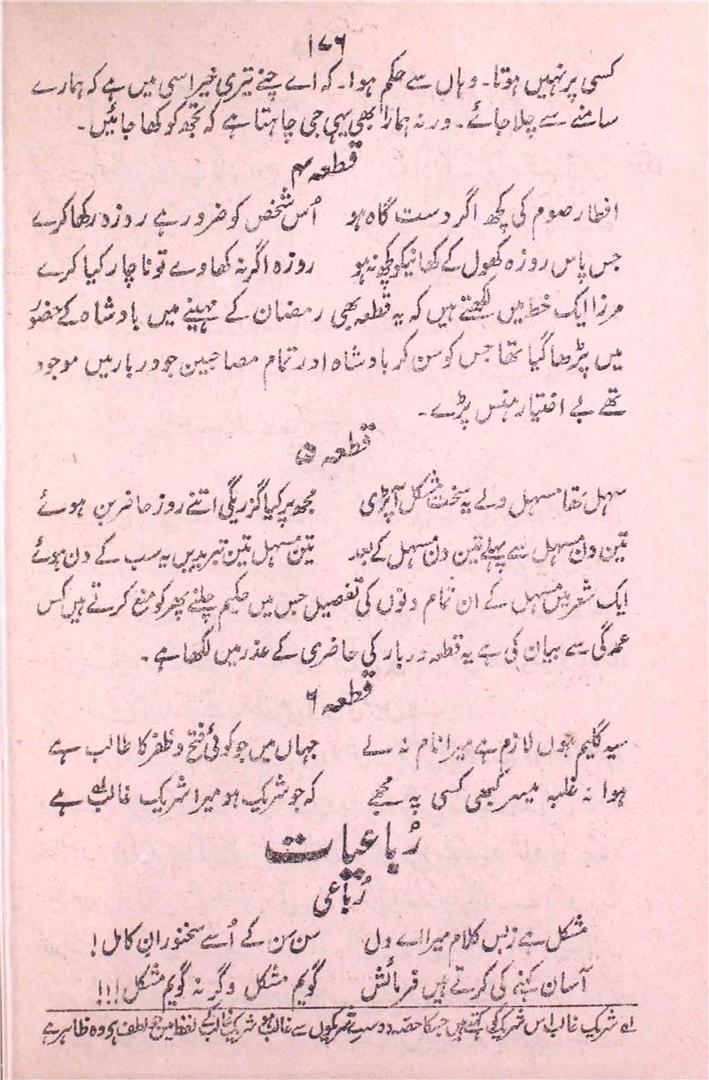 ۱۷۶
کسی پر نہیں ہوتا۔ وہاں سے حکم ہوا۔ کہ اے چنے تیری خیر اسی میں ہے کہ ہمارے
سامنے سے چلا جائے۔ ورنہ ہمارا بھی یہی جی چاہتا ہے کہ تجھ کو کھا جائیں۔
قطعہ ۴
افطار صوم کی کچھ اگر دست گاہ ہو اُس شخص کو ضرور ہے روزہ رکھا کرے
جس پاس روزہ کھول کے کھانیکو کچھ نہ ہو روزہ اگر نہ کھاوے تو ناچار کیا کرے
مرزا ایک خط میں لکھتے ہیں کہ یہ قطعہ بھی رمضان کے مہینے میں بادشاہ کے حضور
میں پڑھا گیا تھا جس کو سن کر بادشاہ اور تمام مصاحبین جو دربار میں موجود
تھے بے اختیار ہنس پڑے۔
قطعہ ۵
سہل تھا مسہل ولے یہ سخت مشکل آپڑی مجھ پر کیا گزریگی اتنے روز حاضر بن ہوئے
تین دن مسہل سے پہلے تین دن مسہل کے بعد تین مسہل تین تبریدیں یہ سب کے دن ہوئے
ایک شعر میں مسہل کے ان تمام دنوں کی تفصیل جس میں حکیم چلنے پھر کو منع کرتے ہیں کس
عمدگی سے بیان کی ہے یہ قطعہ دربار کی حاضری کے عذر میں لکھا ہے۔
قطعہ ۶
سیہ گلیم ہوں لازم ہے میرا نام نہ لے جہاں میں جو کوئی فتح و ظفر کا طالب ہے
ہوا نہ غلبہ میسر کبھی کسی پہ مجھے کہ جو شریک ہو میرا شریک غالب لہ ہے
رُباعیات
رُباعی
مشکل ہے زبس کلام میرا اے دل سن سن کے اُسے سخنورانِ کامل!
آسان کہنے کی کرتے ہیں فرمائش گویم مشکل وگر نہ گویم مشکل!!!
لہ شریک غالب اس شریک کو کہتے ہیں جسکا حصہ دوسرے شریکوں سے غالب ہو شریک غالب کے لفظ میں جو لطف ہے وہ ظاہر ہے